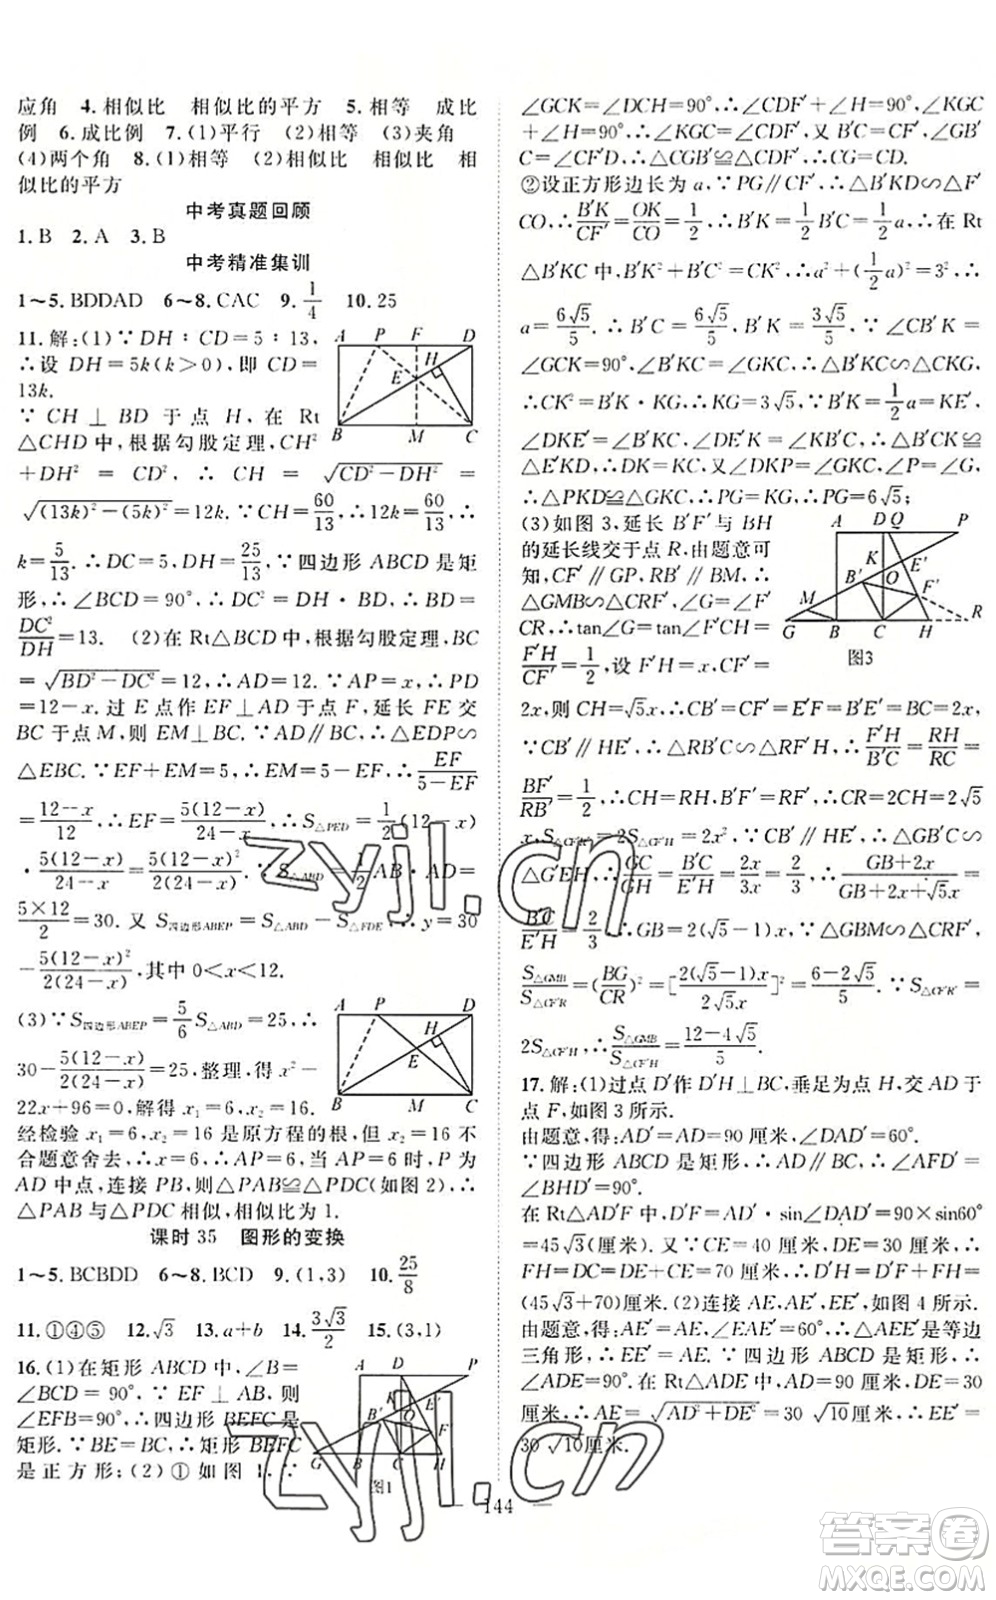 应角 4.相似比 相似比的平方 5.相等 成比
例 6.成比例 7.(1)平行 (2)相等 (3)夹角
(4)两个角 8.(1)相等 (2)相似比 相似比 相
似比的平方
中考真题回顾
1.B 2.A 3.B
中考精准集训
1～5.BDDAD 6～8.CAC 9.1/4 10.25
11.解:(1)∵DH∶CD=5∶13,
∴设 DH=5k(k>0),即 CD=
13k.
∵CH⊥BD 于点 H,在 Rt
△CHD 中,根据勾股定理,CH²
+DH²=CD²,∴CH=√(CD²-DH²)=
√((13k)²-(5k)²)=12k.∵CH=60/13,∴12k=60/13,∴
k=5/13.∴DC=5,DH=25/13.∵四边形 ABCD 是矩
形,∴∠BCD=90°,∴DC²=DH·BD,∴BD=
DC²/DH=13. (2)在 Rt△BCD 中,根据勾股定理,BC
=√(BD²-DC²)=12,∴AD=12.∵AP=x,∴PD
=12-x.过 E 点作 EF⊥AD 于点 F,延长 FE 交
BC 于点 M,则 EM⊥BC.∵AD∥BC,∴△EDP∽
△EBC.∵EF+EM=5,∴EM=5-EF,∴EF/(5-EF)
=(12-x)/12,∴EF=5(12-x)/(24-x),∴S△PED=1/2(12-x)
·5(12-x)/(24-x)=5(12-x)²/(2(24-x)).∵S△ABD=1/2AB·AD=
5×12/2=30.又 S四边形ABEP=S△ABD-S△PDE,∴y=30
-5(12-x)²/(2(24-x)),其中 0<x<12.
(3)∵S四边形ABEP=5/6S△ABD=25,∴
30-5(12-x)²/(2(24-x))=25,整理,得 x²-
22x+96=0,解得 x₁=6,x₂=16.
经检验 x₁=6,x₂=16 是原方程的根,但 x₂=16 不
合题意舍去,∴x=6,∴AP=6,∵AP=6 时,P 为
AD 中点,连接 PB,则△PAB≌△PDC(如图 2),∴
△PAB 与△PDC 相似,相似比为 1.
课时 35 图形的变换
1～5.BCBDD 6～8.BCD 9.(1,3) 10.25/8
11.①④⑤ 12.√3 13.a+b 14.3√3/2 15.(3,1)
16.(1)在矩形 ABCD 中,∠B=
∠BCD=90°,∵EF⊥AB,则
∠EFB=90°,∴四边形 BEFC 是
矩形.∵BE=BC,∴矩形 BEFC
是正方形;(2)①如图 1,∵
A P F D
H
E
B M C
A P D
H
E
B M C
A D P
K
B' O
F
G B C H
图1
∠GCK=∠DCH=90°,∴∠CDF'+∠H=90°,∠KGC
+∠H=90°,∴∠KGC=∠CDF',又 B'C=CF',∠GB'
C=∠CF'D,∴△CGB'≌△CDF',∴CG=CD.
②设正方形边长为 a,∵PG∥CF',∴△B'KO∽△F'
CO,∴B'K/CF'=OK/CO=1/2,∴B'K=1/2B'C=1/2a,∴在 Rt
△B'KC 中,B'K²+B'C²=CK²,∴a²+(1/2a)²=3²,∴
a=6√5/5.∴B'C=6√5/5,B'K=3√5/5,∵∠KB'C=
∠GCK=90°,∠B'KC=∠GKC,∴△B'KC∽△CKG,
∴CK²=B'K·KG,∴KG=3√5,∵B'K=1/2a=KE',
∠DKE'=∠B'KC,∠DE'K=∠KB'C,∴△B'CK≌
△E'KD,∴DK=KC,又∠DKP=∠GKC,∠P=∠G,
∴△PKD≌△GKC,∴PG=KG,∴PG=6√5;
(3)如图 3,延长 B'F'与 BH
的延长线交于点 R,由题意可
知,CF'∥GP,RB'∥BH,∴
△GMB∽△CRF',∴∠G=∠F'
CR,∴tan∠G=tan∠F'CH=
F'H/CF'=1/2,设 F'H=x,CF'=
2x,则 CH=√5x,∴CB'=CF'=E'F=B'F'=BC=2x,
∵CB'∥HE',∴△RCB'∽△RF'H,∴F'H/B'C=RH/RC=
BF'/RB'=1/2,∴CH=RH,B'F'=RF',∴CR=2CH=2√5
x,S△CF'R=2S△CF'H=2x²,∵CB'∥HE',∴△GB'C∽
△G'EH,∴GC/GH=B'C/HE'=2x/3x=2/3,∴(GB+2x)/(GB+2x+√5x)=
B'C/E'H=2/3,∴GB=2(√5-1)x,∵△GBM∽△CF'R,
S△GMB/S△CF'R=(BG/CR)²=[2(√5-1)x/2√5x]²=(6-2√5)/5.∵S△CF'R=
2S△CF'H,∴S△GMB/S△CF'H=(12-4√5)/5.
A D Q P
K E'
B' O
M F'
G B C H R
图3
17.解:(1)过点 D'作 D'H⊥BC,垂足为点 H,交 AD 于
点 F,如图 3 所示.
由题意,得:AD'=AD=90 厘米,∠DAD'=60°.
∵四边形 ABCD 是矩形,∴AD∥BC,∴∠AFD'=
∠BHD'=90°.
在 Rt△AD'F 中,D'F=AD'·sin∠DAD'=90×sin60°
=45√3(厘米). 又∵CE=40 厘米,DE=30 厘米,∴
FH=DC=DE+CE=70 厘米,∴D'H=D'F+FH=
(45√3+70)厘米.(2)连接 AE,AE',EE',如图 4 所示.
由题意,得:AE'=AE,∠EAE'=60°,∴△AEE'是等边
三角形,∴EE'=AE.∵四边形 ABCD 是矩形,∴
∠ADE=90°.在 Rt△ADE 中,AD=90 厘米,DE=30
厘米,∴AE=√(AD²+DE²)=30√10厘米,∴EE'=
30√10厘米.
144
zyjl.cn
zyjl.cn
答案卷
MXQE.COM